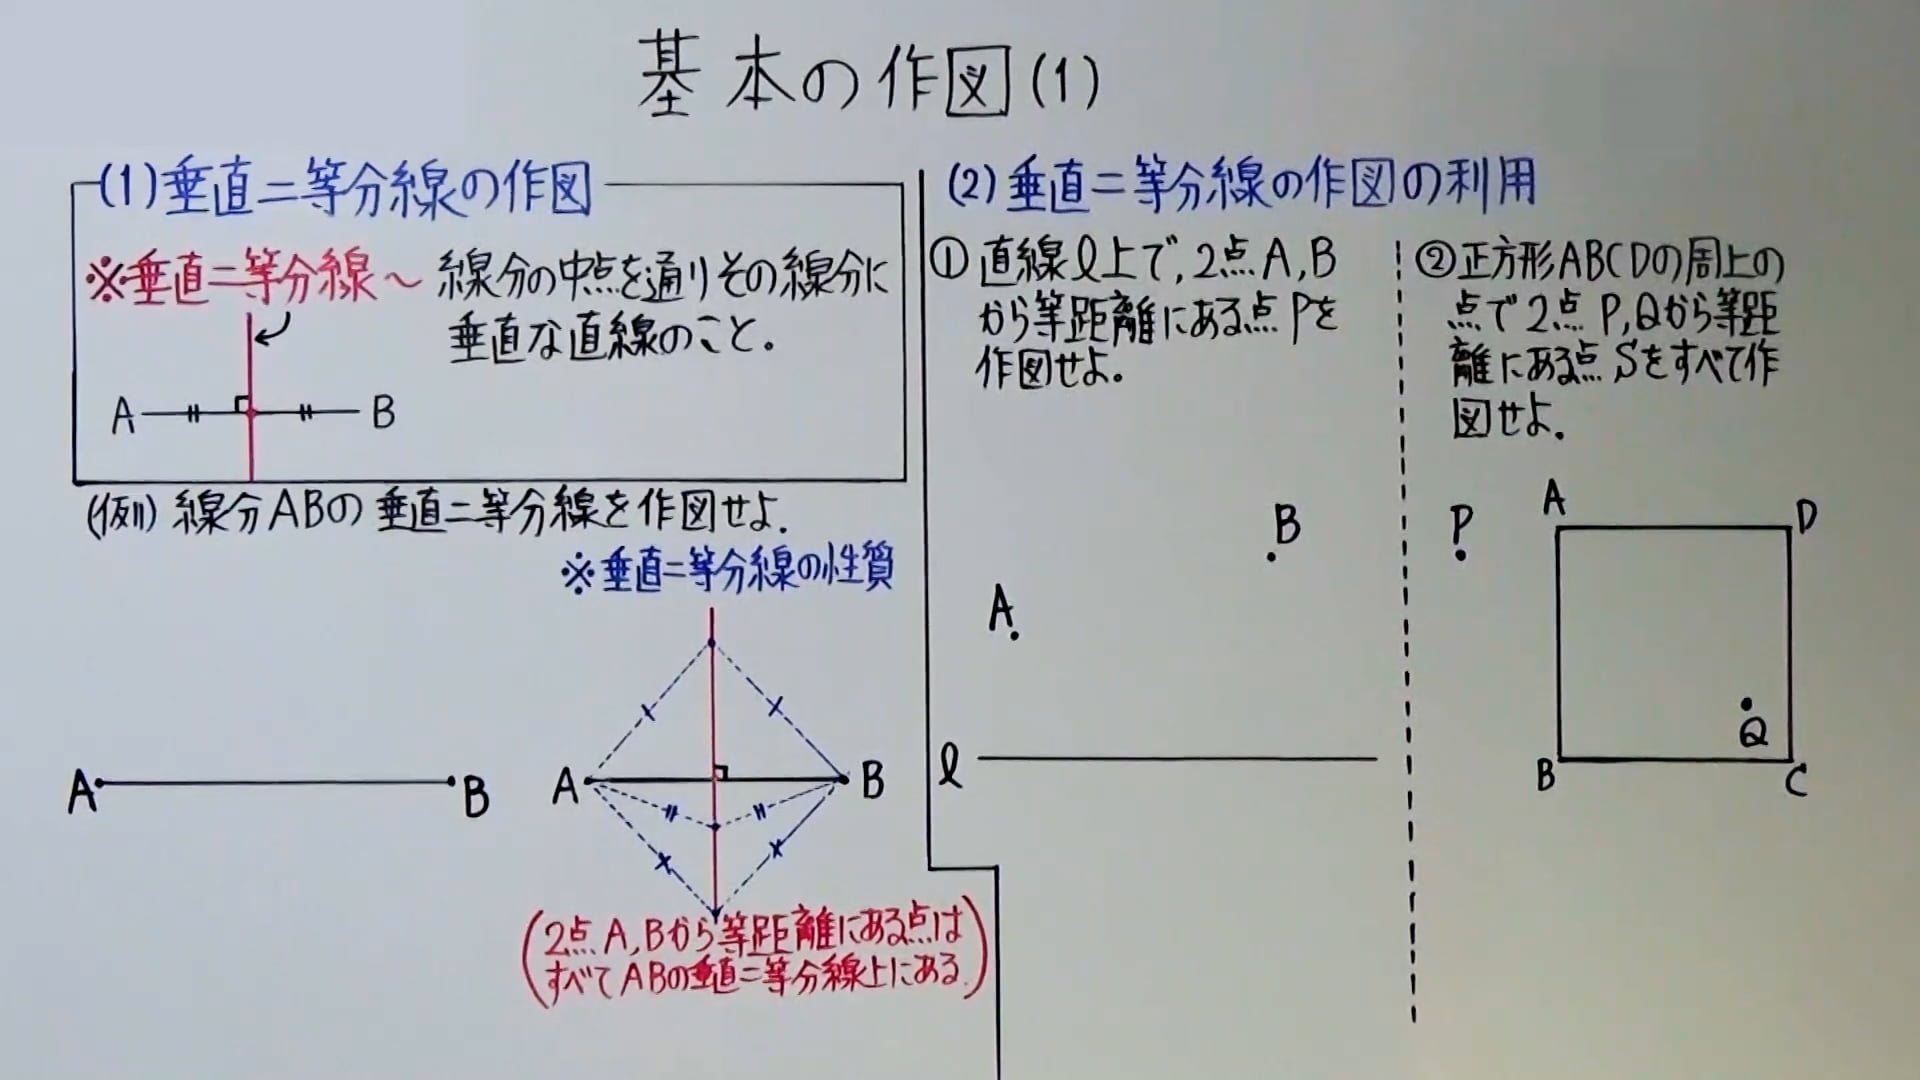 基本の作図(1)
(1)垂直二等分線の作図
※垂直二等分線〜 線分の中点を通りその線分に
垂直な直線のこと。
A B
(例) 線分ABの垂直二等分線を作図せよ.
※垂直二等分線の性質
A B
A B
(2点A,Bから等距離にある点は
すべてABの垂直二等分線上にある.)
(2)垂直二等分線の作図の利用
① 直線ℓ上で,2点A,B
から等距離にある点Pを
作図せよ。
B
A
ℓ
②正方形ABCDの周上の
点で2点P,Qから等距
離にある点Sをすべて作
図せよ.
P
A D
Q
B C